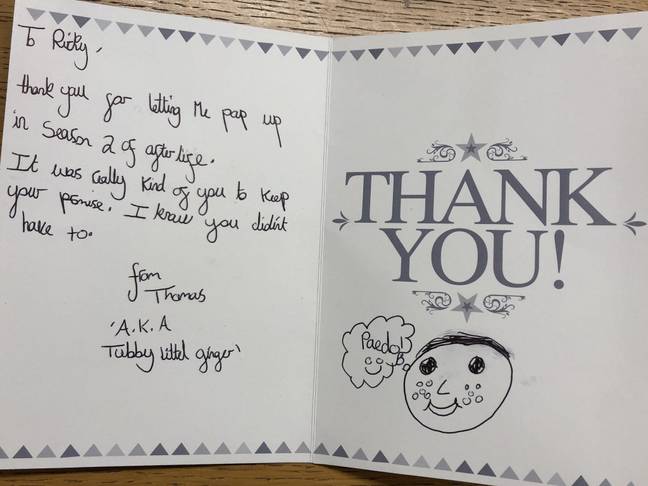 To Ricky,
thank you for letting me pop up
in Season 2 of after life.
It was really kind of you to keep
your promise. I know you didn't
have to.
from
Thomas
'A.K.A
Tubby littel ginger'
THANK
YOU!
Paedo!